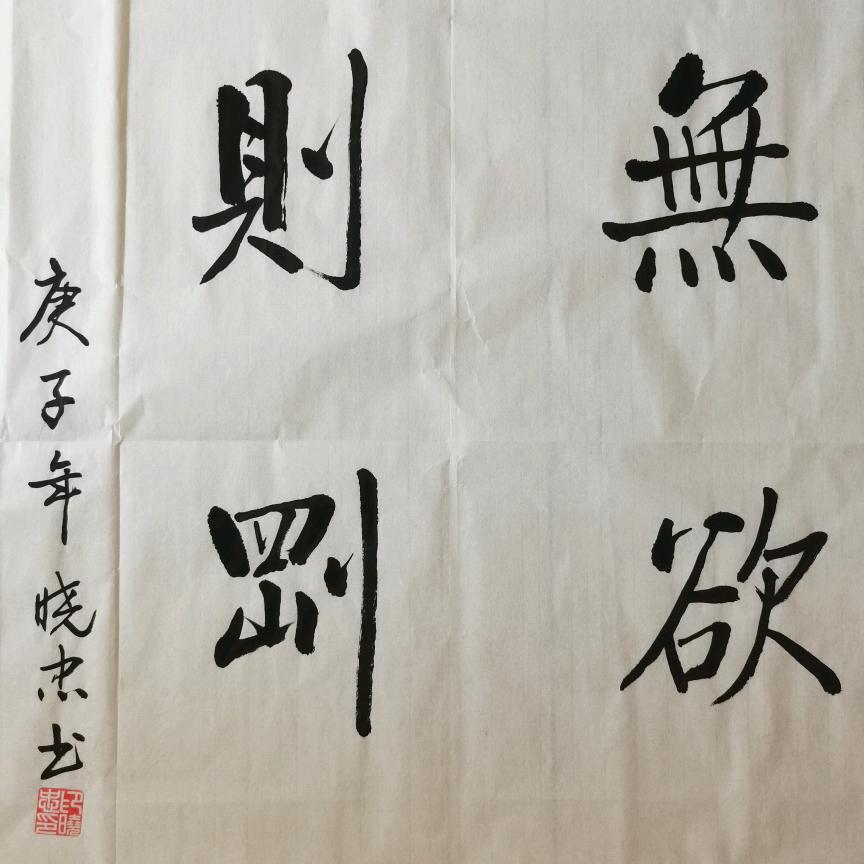 無欲
則剛
庚子年晓忠书